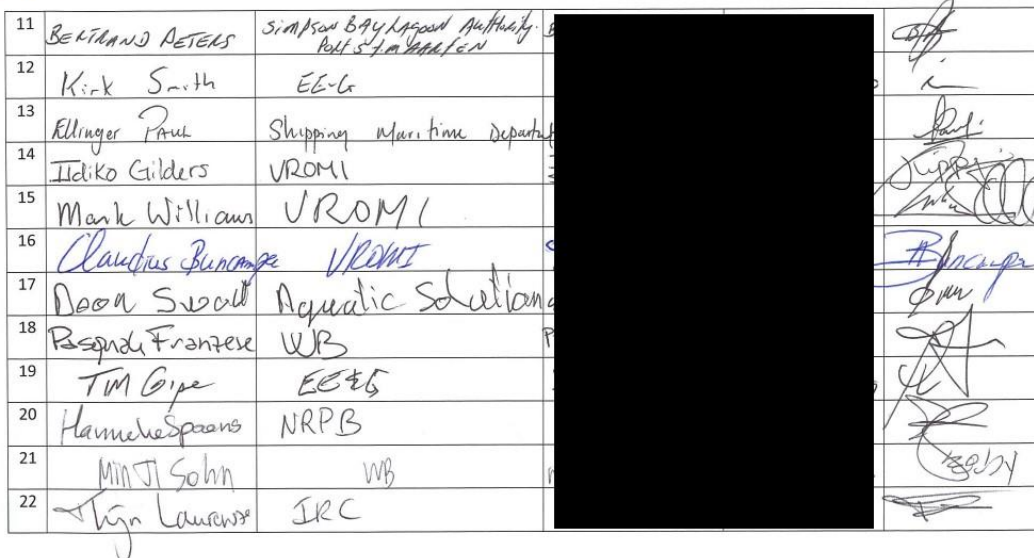 11 BERTRAND PETERS SIMPSON BAY LAGOON Authority.
PORT ST. MAARTEN
12 Kirk Smith EE-G
13 Ellinger PAUL Shipping Maritime Departm
14 Ildiko Gilders VROMI
15 Mark Williams VROMI
16 Claudius Buncamper VROMI Buncamper
17 Aquatic Solutions
18 Pasquale Franzese WB P
19 TIM Gipe EE&G
20 Hanneke Spaans NRPB
21 MINJI Sohn WB
22 Thijn Laurense IRC